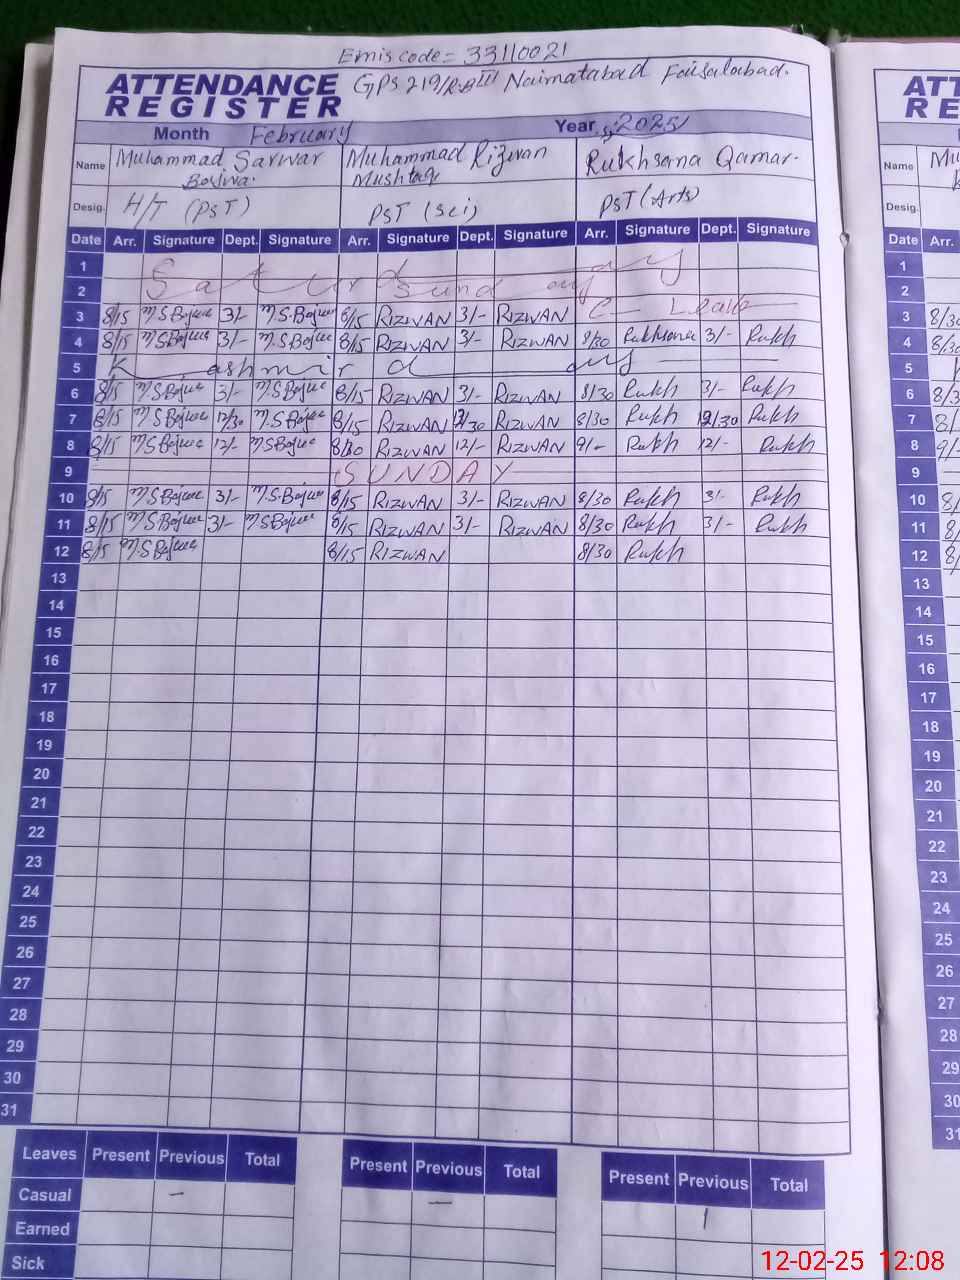 Emis code = 33110021
ATTENDANCE REGISTER
GPS 219/R.B III Naimatabad Faisalabad.
Month February Year 2025
Name Muhammad Sarwar Bajwa. Muhammad Rizwan Mushtaq Rukhsana Qamar.
Desig. H/T (PST) PST (Sci) PST (Arts)
Date Arr. Signature Dept. Signature Arr. Signature Dept. Signature Arr. Signature Dept. Signature
1 Saturday
2 Sunday
3 8/15 M.S Bajwa 3/- M.S.Bajwa 8/15 RIZWAN 3/- RIZWAN C- Leave
4 8/15 M.S Bajwa 3/- M.S.Bajwa 8/15 RIZWAN 3/- RIZWAN 8/30 Rukhsana 3/- Rukh
5 Kashmir day
6 8/15 M.S Bajwa 3/- M.S Bajwa 8/15 RIZWAN 3/- RIZWAN 8/30 Rukh 3/- Rukh
7 8/15 M.S Bajwa 12/30 M.S Bajwa 8/15 RIZWAN 12/30 RIZWAN 8/30 Rukh 12/30 Rukh
8 8/15 M.S Bajwa 12/- M.S Bajwa 8/30 RIZWAN 12/- RIZWAN 9/- Rukh 12/- Rukh
9 SUNDAY
10 8/15 M.S Bajwa 3/- M.S.Bajwa 8/15 RIZWAN 3/- RIZWAN 8/30 Rukh 3/- Rukh
11 8/15 M.S Bajwa 3/- M.S Bajwa 8/15 RIZWAN 3/- RIZWAN 8/30 Rukh 3/- Rukh
12 8/15 M.S Bajwa 8/15 RIZWAN 8/30 Rukh
13
14
15
16
17
18
19
20
21
22
23
24
25
26
27
28
29
30
31
Leaves Present Previous Total Present Previous Total Present Previous Total
Casual - - 1
Earned
Sick
ATT
RE
Name Mu
Desig.
Date Arr.
1
2
3 8/30
4 8/30
5
6 8/3
7 8/
8 9/-
9
10 8/
11 8/
12 8/
13
14
15
16
17
18
19
20
21
22
23
24
25
26
27
28
29
30
31
12-02-25 12:08